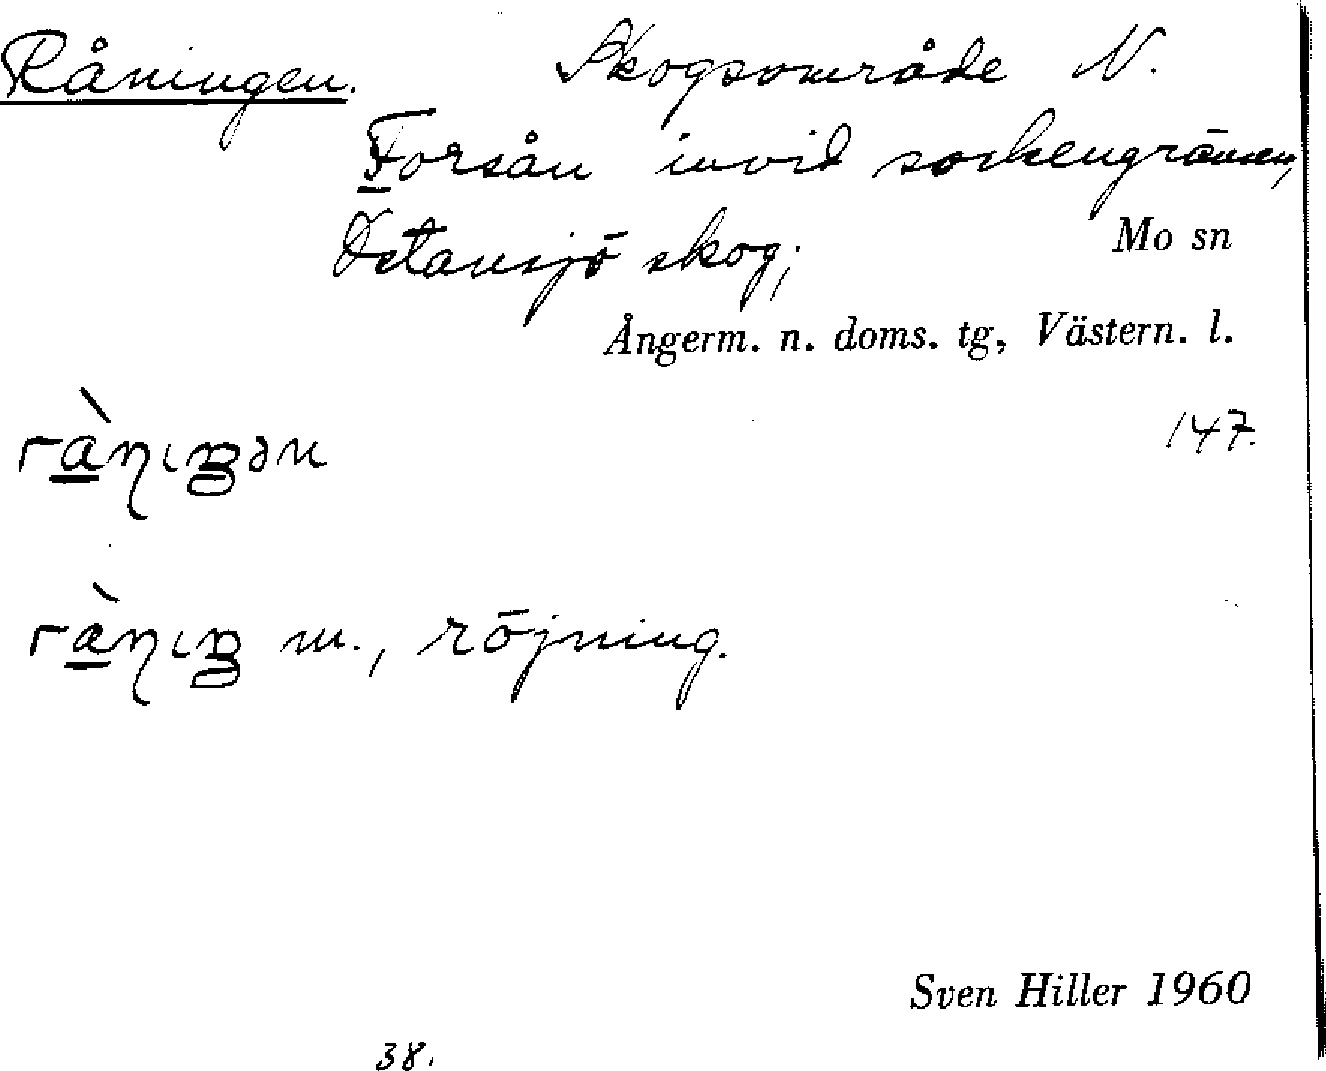 Råningen. Skogsområde N.
Forsån invid sockengränsen,
Östansjö skog;
Mo sn
Ångerm. n. doms. tg, Västern. l.
147.
ràṇıŋən
ràṇıŋ m., röjning.
Sven Hiller 1960
38.